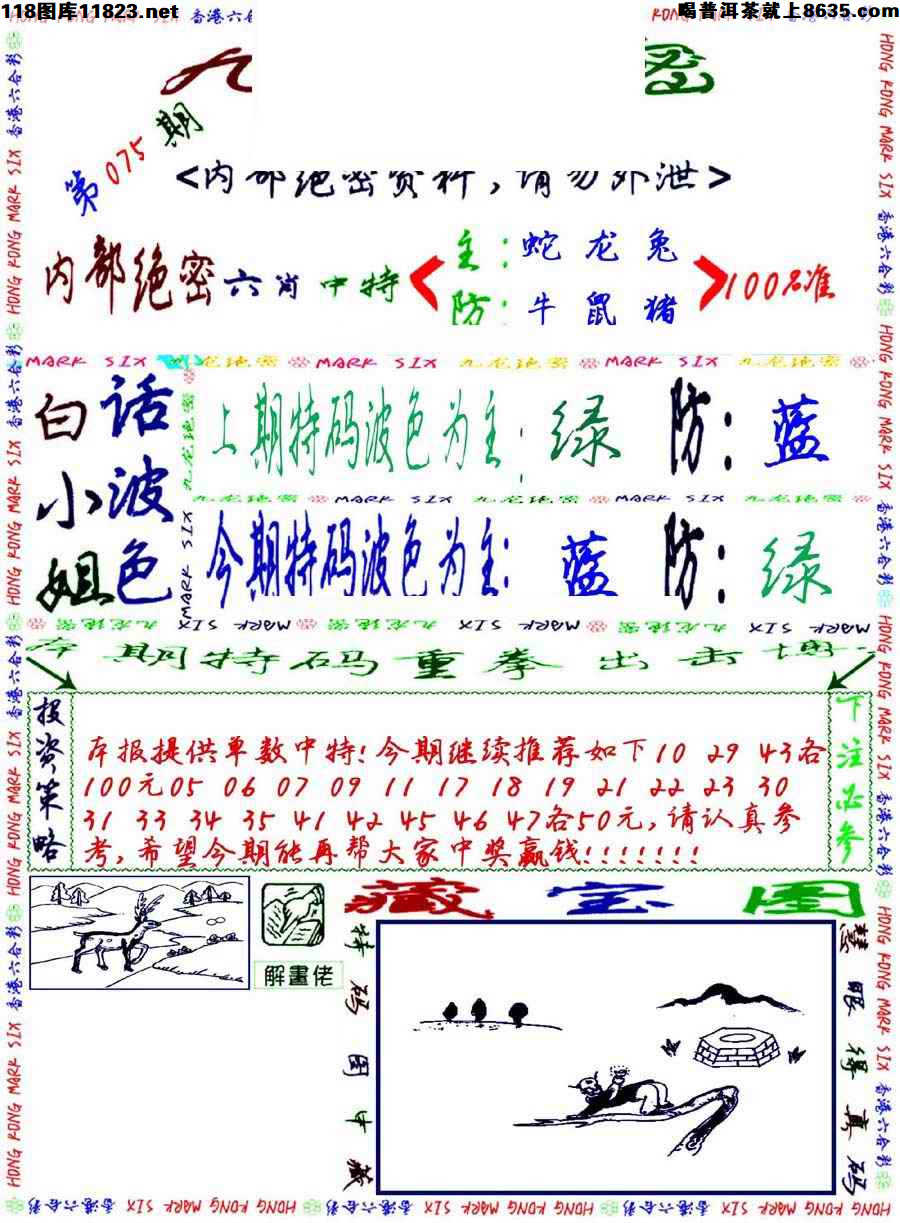 118图库11823.net
喝普洱茶就上8635.com
第075期
<内部绝密资料,请勿外泄>
内部绝密六肖中特
主:蛇龙兔
防:牛鼠猪
100%准
MARK SIX 九龙绝密 MARK SIX 九龙绝密 MARK SIX 九龙绝密
白话小波姐色
上期特码波色为主:绿 防:蓝
九龙绝密 MARK SIX 九龙绝密 MARK SIX 九龙绝密 MARK SIX
今期特码波色为主:蓝 防:绿
九龙绝密 MARK SIX 九龙绝密 MARK SIX 九龙绝密 MARK SIX
本期特码重拳出击
投资策略
本报提供单数中特!今期继续推荐如下10 29 43各
100元05 06 07 09 11 17 18 19 21 22 23 30
31 33 34 35 41 42 45 46 47各50元,请认真参
考,希望今期能再帮大家中奖赢钱!!!!!!!
下注必参
解畫佬
藏宝图
特码图中藏
慧眼得真码
HONG KONG MARK SIX 香港六合彩